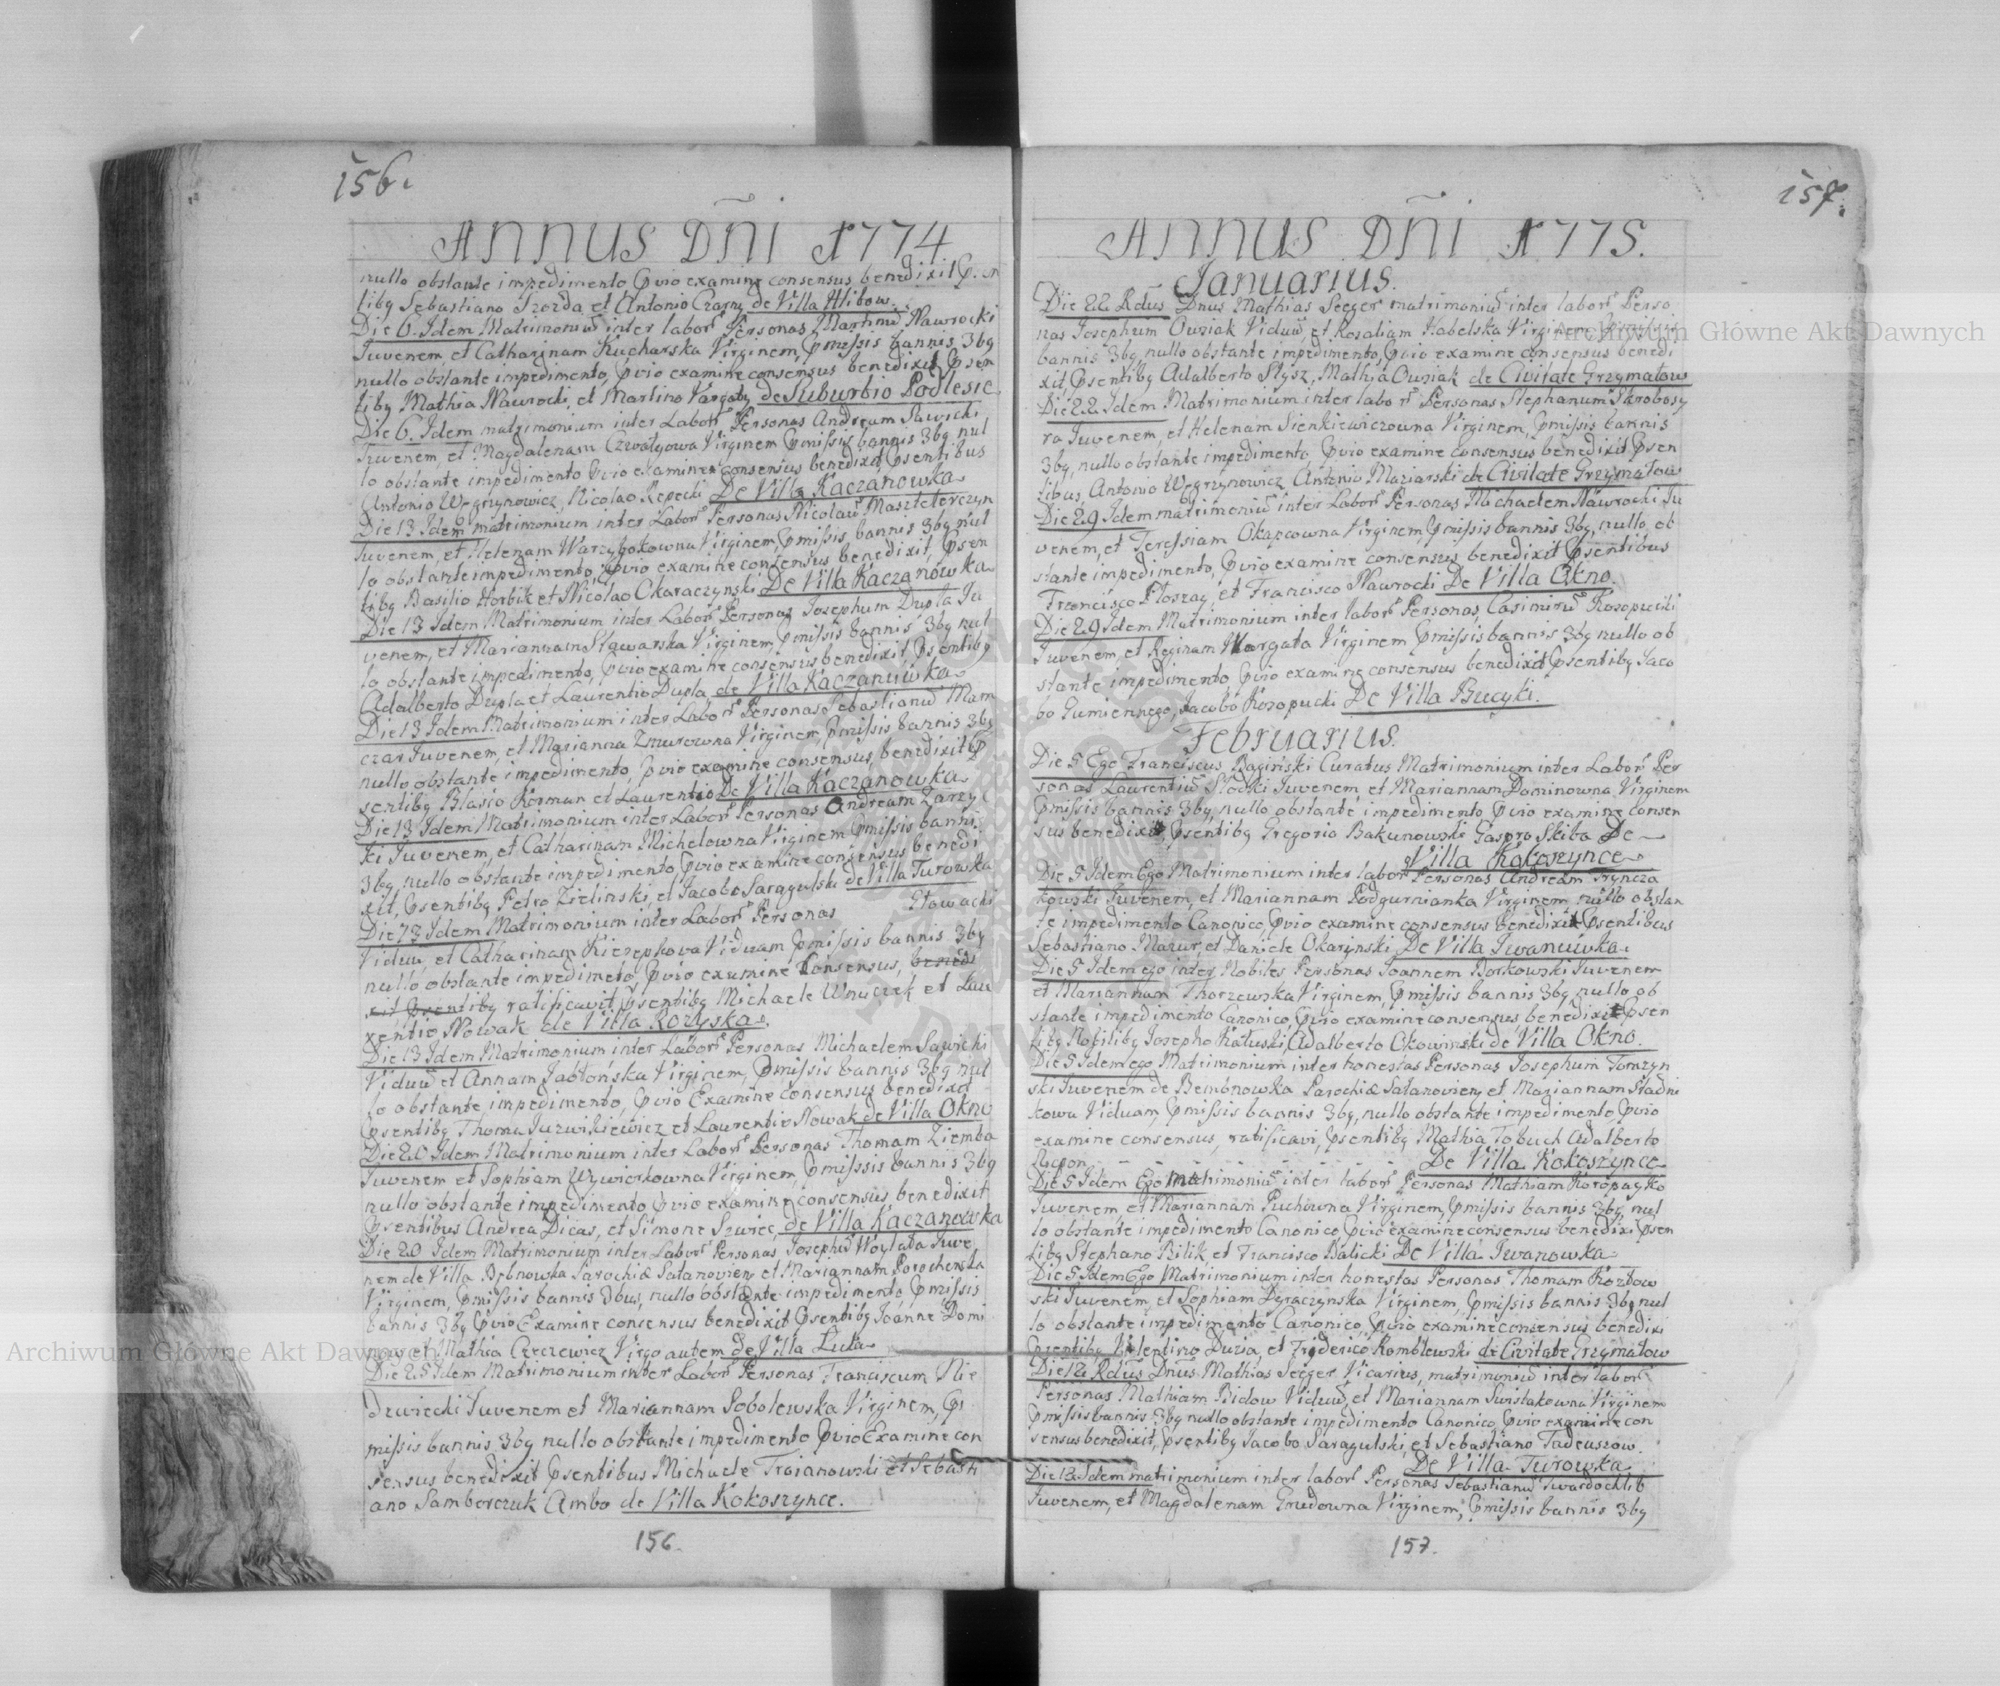 156.
ANNUS DÑI 1774
nullo obstante impedimento pvio examine consensus benedixit p.
tibq Sebastiano et Antonio Czarny de Villa Hlibow.
Die 6. Idem Matrimoniū inter labor Personas Martinū Nawrocki
Iuvenem, et Catharinam Kucharska Virginem, pmissis bannis 3bq
nullo obstante impedimento, pvio examine consensus benedixit psen
tibq Mathia Nawrocki, et Martino de Suburbio Podlesie
Die 6. Idem matrimonium inter Labor Personas Andream Sawicki
Iuvenem, et Magdalenam Virginem pmissis bannis 3bq nul
lo obstante impedimento pvio examine consensus benedixit psentibus
Antonio Węgrzynowicz, Nicolao Repecki De Villa Kaczanowka
Die 13 Idem matrimonium inter Labor Personas Nicolaū Masztelerczyn
Iuvenem, et Helenam Warzybokowna Virginem, pmissis, bannis 3bq nul
lo obstante impedimento, pvio examine consensus benedixit, psen
tibq Basilio Horbik et Nicolao Okaraczynski De Villa Kaczanowka
Die 13 Idem Matrimonium inter Labor Personas Iosephum Dupla Iu
venem, et Mariannam Sławarska Virginem pmissis bannis 3bq nul
lo obstante impedimento, pvio examine consensus benedixit psentibq
Adalberto Dupla et Laurentio Dupla de Villa Kaczanuwka
Die 13 Idem Matrimonium inter Labor Personas Sebastianū Mam
czar Iuvenem, et Marianna Zmurowna Virginem, pmissis bannis 3bq
nullo obstante impedimento, pvio examine consensus, benedixit p
sentibq Blasio Korman et Laurentio De Villa Kaczanowka
Die 13 Idem Matrimonium inter Labor Personas Andream Zarzy
ki Iuvenem, et Catharinam Michelowna Virginem pmissis bannis
3bq nullo obstante impedimento pvio examine consensus benedi
xit, psentibq Petro Zielinski, et Iacobo Saragulski de Villa Turowka
Die 13 Idem Matrimonium inter Labor Personas Eławacki
Viduū, et Catharinam Kierepkowa Viduam pmissis bannis 3bq
nullo obstante impedimeto, pvio examine Consensus, benedi
xit psentibq ratificavit psentibq Michaele Wnuczek et Lau
rentio Nowak de Villa Rożyska.
Die 13 Idem Matrimonium inter Labor Personas Michaelem Sawicki
Viduū et Annam Jabłońska Virginem, pmissis bannis 3bq nul
lo obstante, impedimento, pvio Examine consensus benedixit
psentibq Thoma Iurwikiewicz et Laurentio Nowak de Villa Okno
Die 20 Idem Matrimonium inter Labor Personas Thomam Ziemba
Iuvenem et Sophiam Wywiorkowna Virginem, pmissis bannis 3bq
nullo obstante impedimento pvio examine consensus benedixit
psentibus Andrea Dicas, et Simone Szwiec, de Villa Kaczanowka
Die 20 Idem Matrimonium inter Labor Personas Iosephū Woylała Iuve
nem de Villa Bębnowka Parochiæ Satanovien et Mariannam Porochenska
Virginem, pmissis bannis 3bus, nullo obstante impedimento, pmissis
bannis 3bq pvio Examine consensus benedixit psentibq Ioanne Domi
now et Mathia Czeczewicz Virgo autem de Villa Lula
Die 25 Idem Matrimonium inter Labor Personas Franciscum Nie
dzwiecki Iuvenem et Mariannam Sobolewska Virginem, p
missis bannis 3bq nullo obstante impedimento pvio Examine con
sensus benedixit psentibus Michaele Troianowski et Sebasti
ano Samborczuk Ambo de Villa Kokoszynce.
156.
157.
ANNUS DÑI 1775.
Ianuarius.
Die 22 Rdūs Dnus Mathias Seeger matrimoniū inter labor Perso
nas Iosephum Owsiak Viduū, et Rosaliam Habelska Virginem, pmissis
bannis 3bq, nullo obstante impedimento, pvio examine consensus benedi
xit psentibq Adalberto Slysz, Mathia Owsiak de Civitate Grzymałow
Die 22 Idem Matrimonium inter labor Personas Stephanum Skrobosy
ra Iuvenem, et Helenam Sienkiewiczowna Virginem, pmissis bannis
3bq, nullo obstante impedimento, pvio examine consensus benedixit psen
tibus, Antonio Węgrzynowicz Antonio Maziarski de Civitate Grzymałow
Die 29 Idem matrimoniū inter Labor Personas Michaelem Nawrocki Iu
venem, et Teressiam Okapcowna Virginem pmissis bannis 3bq, nullo, ob
stante impedimento, pvio examine consensus benedixit psentibus
Francisco Płoszay, et Francisco Nawrocki De Villa Okno.
Die 29 Idem Matrimonium inter labor Personas, Casimirū Rosopucki
Iuvenem, et Reginam Wargata Virginem pmissis bannis 3bq nullo ob
stante impedimento pvio examine consensus benedixit psentibq Iaco
bo Gumiennego, Iacobo Rosopucki De Villa Bucyki.
Februarius.
Die 5 Ego Franciscus Bagiński Curatus Matrimonium inter Labor Per
sonas Laurentiū Słodki Iuvenem, et Mariannam Dominowna Virginem
pmissis bannis 3bq, nullo obstante impedimento pvio examine consen
sus benedixi, psentibq Gregorio Bakunowski Gaspro Skiba De
Villa Kokoszynce
Die 5 Idem Ego Matrimonium inter labor Personas Andream Tryncza
kowski Iuvenem, et Mariannam Podgurnianka Virginem nullo obstan
te impedimento Canonico, pvio examine consensus benedixi psentibus
Sebastiano Mazur, et Daniele Okarynski De Villa Iwanuwka.
Die 5 Idem ego inter Nobiles Personas Ioannem Borkowski Iuvenem
et Mariannam Thorzewska Virginem, pmissis bannis 3bq nullo ob
stante impedimento Canonico, pvio examine consensus benedixi psen
tibq Nobilibq Iosepho Kałuski, Adalberto Okowinski de Villa Okno.
Die 5 Idem ego Matrimonium inter honestas Personas Iosephum Tomzyn
ski Iuvenem de Bembnowka Parochiæ Satanovien, et Mariannam Stadni
kowa Viduam, pmissis bannis 3bq, nullo obstante impedimento, pvio
examine consensus, ratificavi, psentibq Mathia Tobuch Adalberto
De Villa Kokoszynce
Die 5 Idem Ego matrimoniū inter labor Personas Mathiam Koropayko
Iuvenem et Mariannam Puchowna Virginem, pmissis bannis 3bq, nul
lo obstante impedimento Canonico, pvio examine consensus benedixi psen
tibq Stephano Bilik et Francisco Balicki De Villa Iwanowka
Die 5 Idem Ego Matrimonium inter honestas Personas Thomam Kozłow
ski Iuvenem, et Sophiam Dęraczynska Virginem, pmissis bannis 3bq nul
lo obstante impedimento Canonico, pvio examine consensus benedixi
psentibq Valentino Duzia, et Friderico Romblewski de Civitate Grzymałow
Die 12 Rdūs Dnus Mathias Seeger Vicarius, matrimoniū inter labor
Personas Mathiam Bidow Viduū, et Mariannam Swistakowna Virginem
pmissis bannis 3bq nullo obstante impedimento Canonico, pvio examine con
sensus benedixit, psentibq Iacobo Saragulski, et Sebastiano Tadeuszow.
De Villa Turowka
Die 12 Idem matrimonium inter labor Personas Sebastianū Twardochlib
Iuvenem, et Magdalenam Grudowna Virginem, pmissis bannis 3bq
157.
Archiwum Główne Akt Dawnych
Archiwum Główne Akt Dawnych